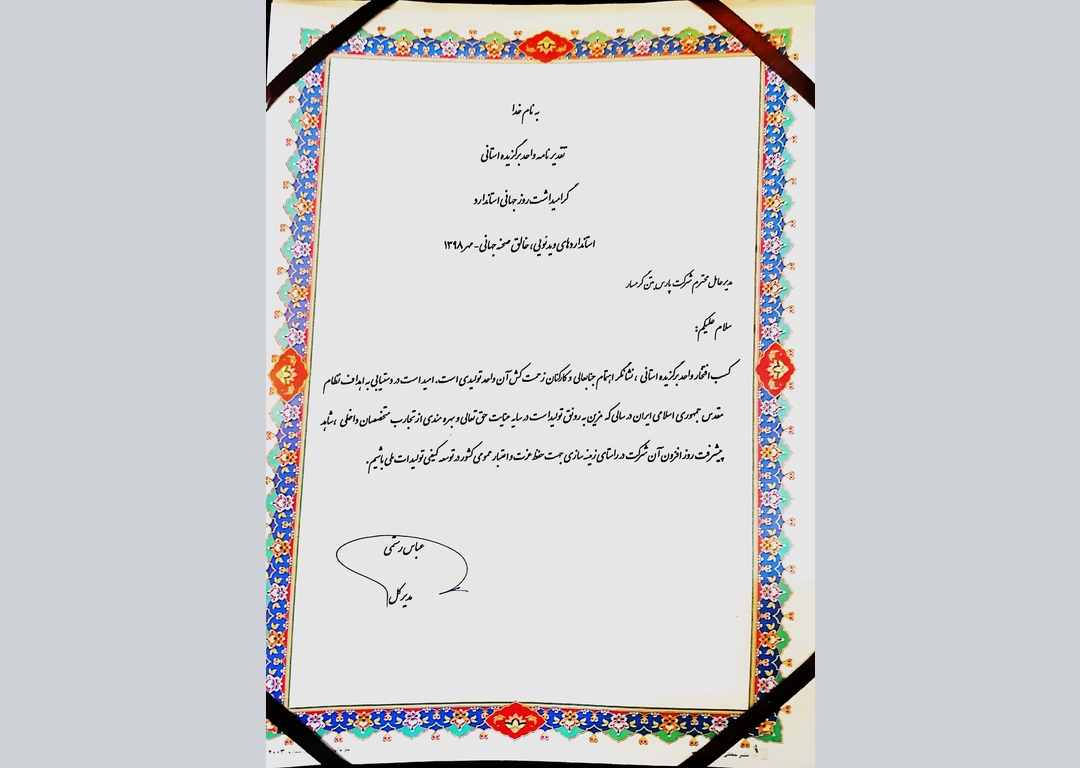 به نام خدا
تقدیر نامه واحد برگزیده استانی
گرامیداشت روز جهانی استاندارد
استانداردهای ویدئویی، خالق صحنه جهانی - مهر ۱۳۹۸
مدیر عامل محترم شرکت پارس بتن گرمسار
سلام علیکم:
کسب افتخار واحد برگزیده استانی ، نشانگر اهتمام جنابعالی و کارکنان زحمت کش آن واحد تولیدی است. امید است در دستیابی به اهداف نظام
مقدس جمهوری اسلامی ایران در سالی که مزین به رونق تولید است در سایه عنایت حق تعالی و بهره مندی از تجارب متخصصان داخلی ، شاهد
پیشرفت روز افزون آن شرکت در راستای زمینه سازی جهت حفظ عزت و اعتبار عمومی کشور در توسعه کیفی تولیدات ملی باشیم.
عباس رستمی
مدیر کل